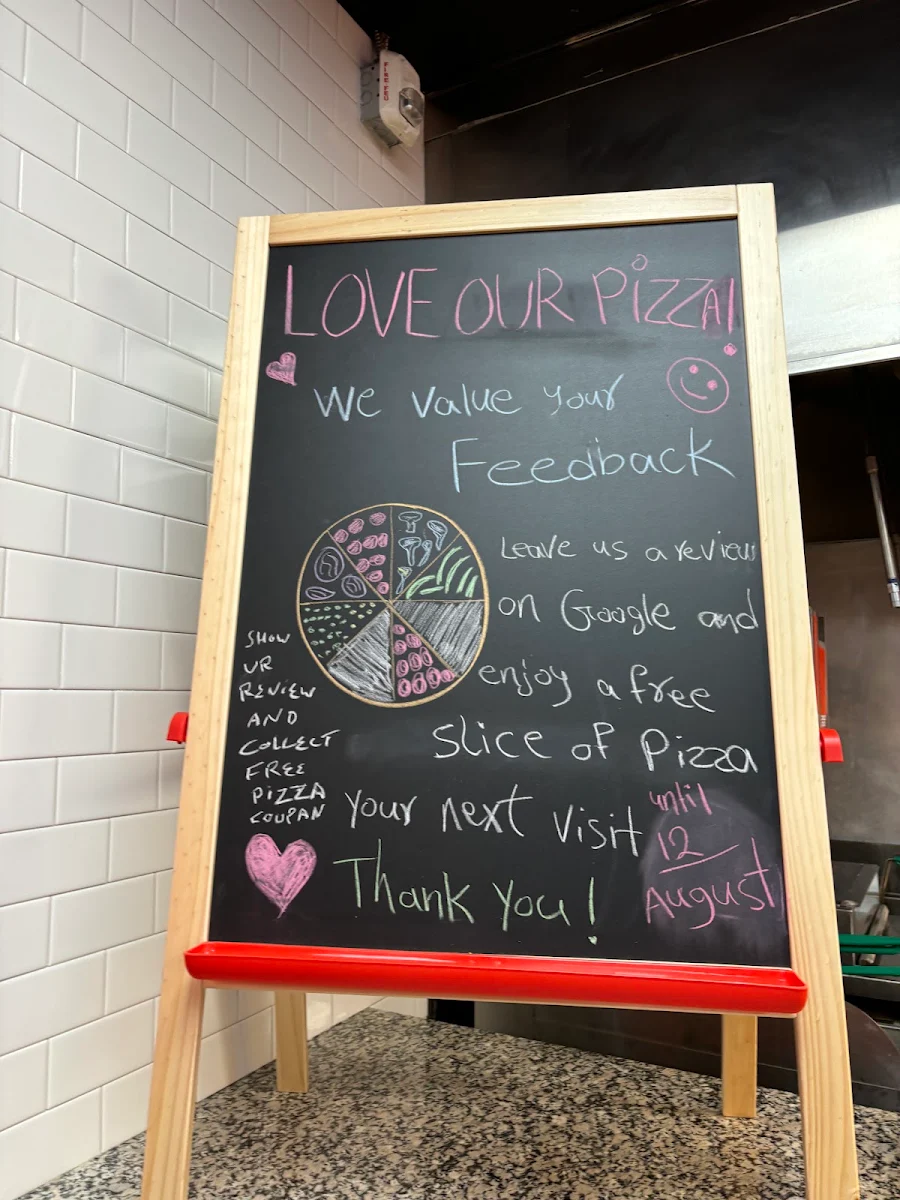 FIRE FEU
LOVE OUR PiZZA!
We value your
Feedback
Leave us a review
on Google and
enjoy a free
slice of Pizza
your next visit
until
12
August
Thank you!
SHOW
UR
REVIEW
AND
COLLECT
FREE
PIZZA
COUPAN